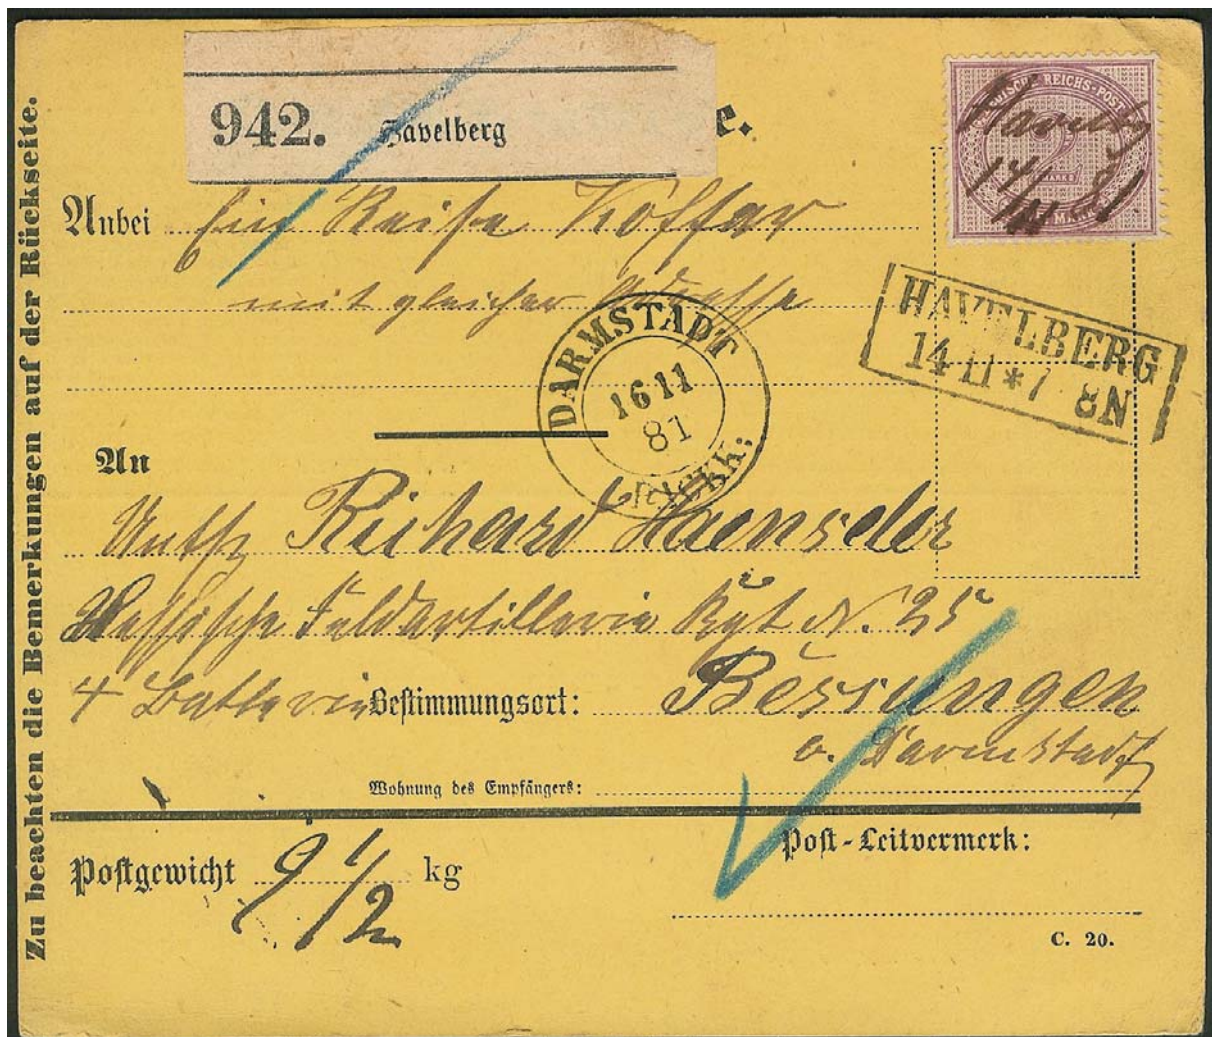 Zu beachten die Bemerkungen auf der Rückseite.
942. Havelberg
e.
DEUTSCHE REICHS-POST
2
MARK
14/11 81.
Anbei Ein Reise Koffer
mit gleicher Adresse
HAVELBERG
14 11 * 7 8N
DARMSTADT
16 11
81
An
Richard Haenseler
Hessische Feldartillerie Rgt N. 25
4 Batterie Bestimmungsort: Bessungen
b. Darmstadt
Wohnung des Empfängers:
Post-Leitvermerk:
Postgewicht 9 1/2 kg
C. 20.